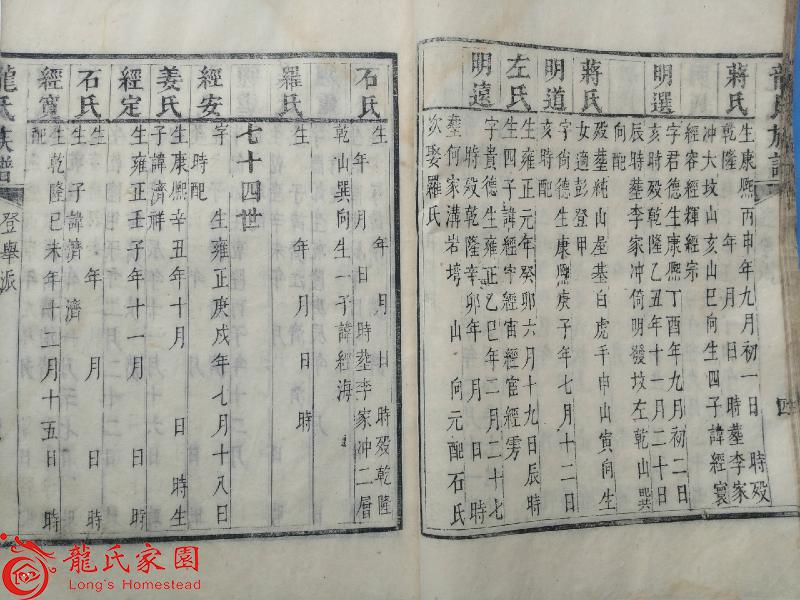 龍氏族譜
四
蔣氏
生康熙丙申年九月初一日 時殁
乾隆 年 月 日 時塟李家
冲大坟山亥山巳向生四子諱經寰
經容經輝經宗
明選
字君德生康熙丁酉年九月初二日
亥時殁乾隆乙丑年十一月二十日
辰時塟李家冲倚明發坟左乾山巽
向配
蔣氏
殁塟純山屋基白虎手申山寅向生
女適彭登甲
明道
字尚德生康熙庚子年七月十二日
亥時配
左氏
生雍正元年癸卯六月十九日辰時
生四子諱經字經宙經官經雱
明遠
字貴德生雍正乙巳年二月二十七
時殁乾隆辛卯年 月 日 時
塟何家溝岩塝 山 向元配石氏
次娶羅氏
石氏
生 年 月 日 時殁乾隆
年 月 日 時塟李家冲二層
乾山巽向生一子諱經海
羅氏
生 年 月 日 時
七十四世
經安
字 生雍正庚戌年七月十八日
時配
姜氏
生康熙辛丑年十月 日 時生
子諱濟祥
經定
生雍正壬子年十一月 日 時
石氏
生 年 月 日 時
生 子諱濟 濟
經寬
生乾隆己未年十二月十五日 時
配
龍氏族譜
登舉派
龍氏家園
Long's Homestead